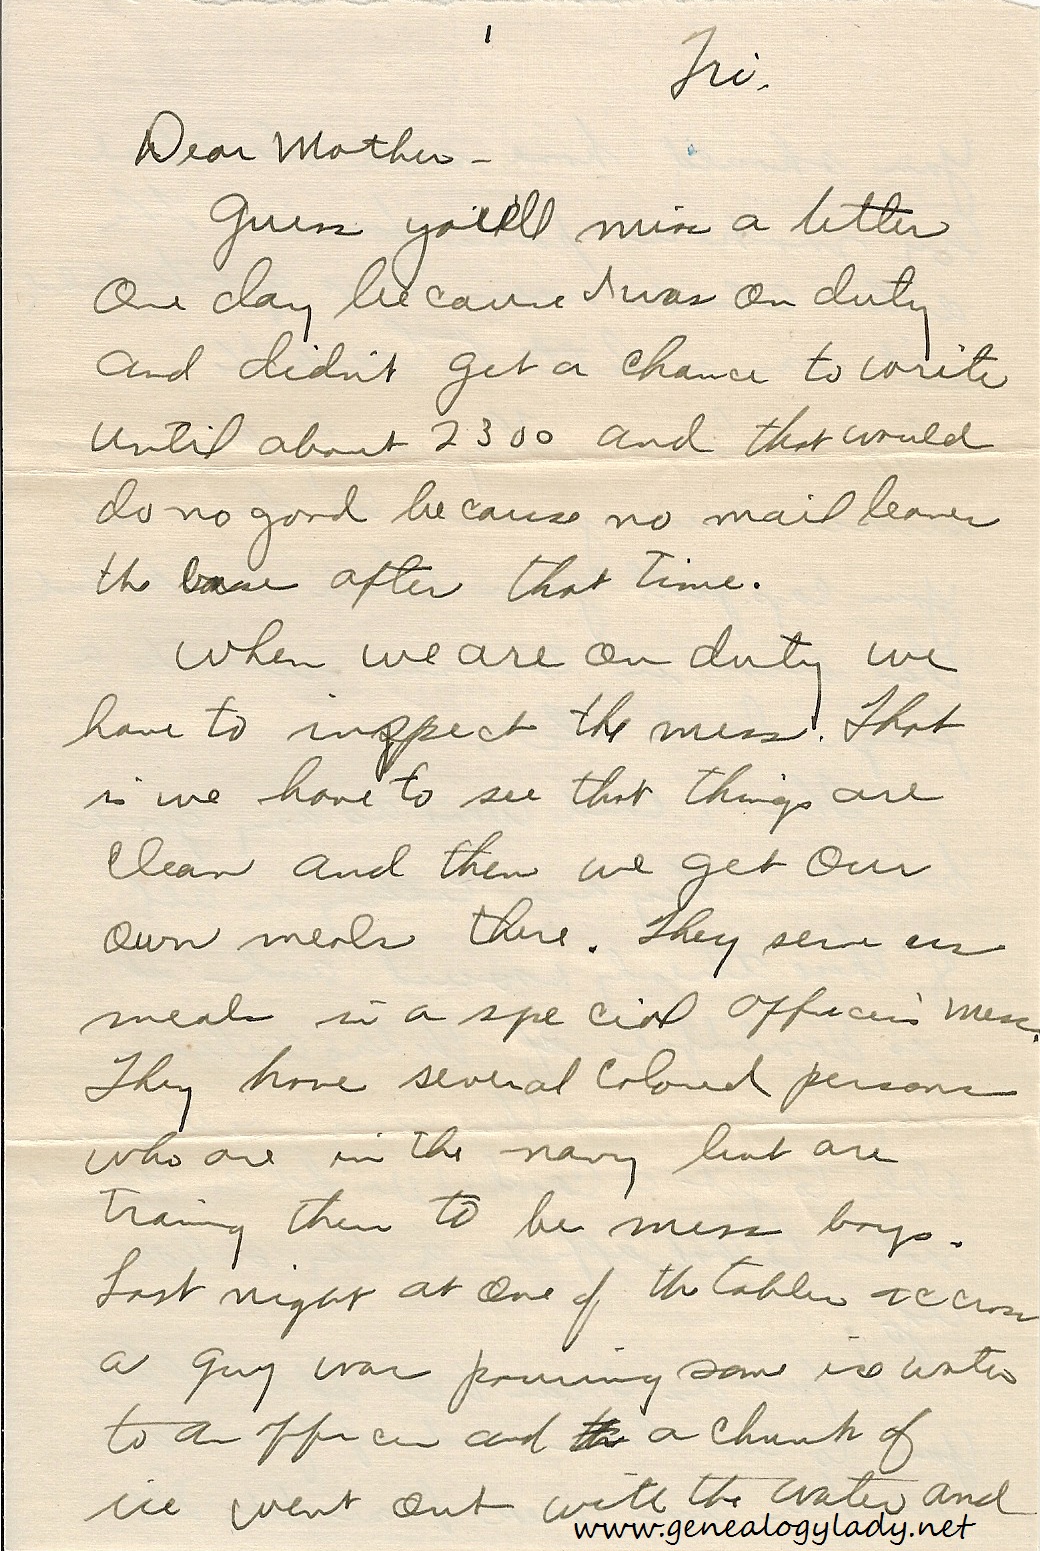 1
Fri.
Dear Mother -
Guess you'll miss a letter
one day because I was on duty
and didn't get a chance to write
until about 2300 and that would
do no good because no mail leaves
the base after that time.
When we are on duty we
have to inspect the mess. That
is we have to see that things are
clean and then we get our
own meals there. They serve us
meals in a special officer's mess.
They have several colored persons
who are in the navy but are
traing them to be mess boys.
Last night at one of the tables accross
a guy was pouring some ice water
to an officer and a chunk of
ice went out with the water and
www.genealogylady.net